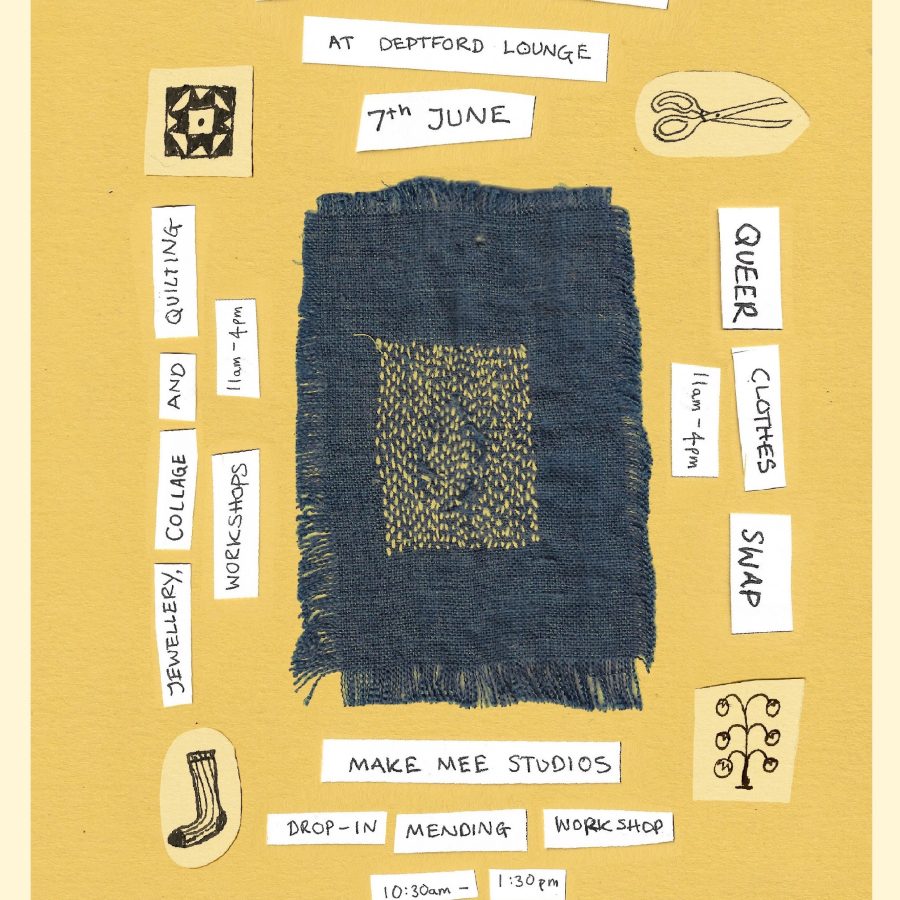 AT DEPTFORD LOUNGE
7th JUNE
JEWELLERY, COLLAGE AND QUILTING
WORKSHOPS 11am-4pm
QUEER CLOTHES SWAP
11am-4pm
MAKE MEE STUDIOS
DROP-IN MENDING WORKSHOP
10:30am - 1:30pm